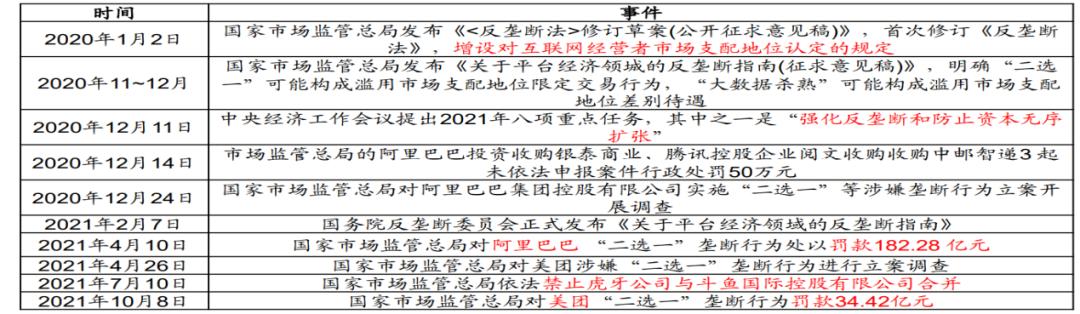 时间 事件
2020年1月2日 国家市场监管总局发布《<反垄断法>修订草案(公开征求意见稿)》，首次修订《反垄断
法》，增设对互联网经营者市场支配地位认定的规定
2020年11~12月 国家市场监管总局发布《关于平台经济领域的反垄断指南(征求意见稿)》，明确“二选
一”可能构成滥用市场支配地位限定交易行为，“大数据杀熟”可能构成滥用市场支配
地位差别待遇
2020年12月11日 中央经济工作会议提出2021年八项重点任务，其中之一是“强化反垄断和防止资本无序
扩张”
2020年12月14日 市场监管总局的阿里巴巴投资收购银泰商业、腾讯控股企业阅文收购收购中邮智递3 起
未依法申报案件行政处罚50万元
2020年12月24日 国家市场监管总局对阿里巴巴集团控股有限公司实施“二选一”等涉嫌垄断行为立案开
展调查
2021年2月7日 国务院反垄断委员会正式发布《关于平台经济领域的反垄断指南》
2021年4月10日 国家市场监管总局对阿里巴巴 “二选一” 垄断行为处以罚款182.28 亿元
2021年4月26日 国家市场监管总局对美团涉嫌“二选一” 垄断行为进行立案调查
2021年7月10日 国家市场监管总局依法禁止虎牙公司与斗鱼国际控股有限公司合并
2021年10月8日 国家市场监管总局对美团“二选一” 垄断行为罚款34.42亿元